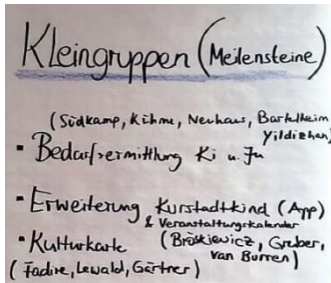 Kleingruppen (Meilensteine)
(Südkamp, Kühme, Neuhaus, Bartelheim
Yildizhan)
- Bedarfsermittlung Ki u. Ju
- Erweiterung Kurstadtkind (App)
& Veranstaltungskalender
- Kulturkarte (Broskiewicz, Gruber,
van Burren)
(Fadire, Lewald, Gärtner)